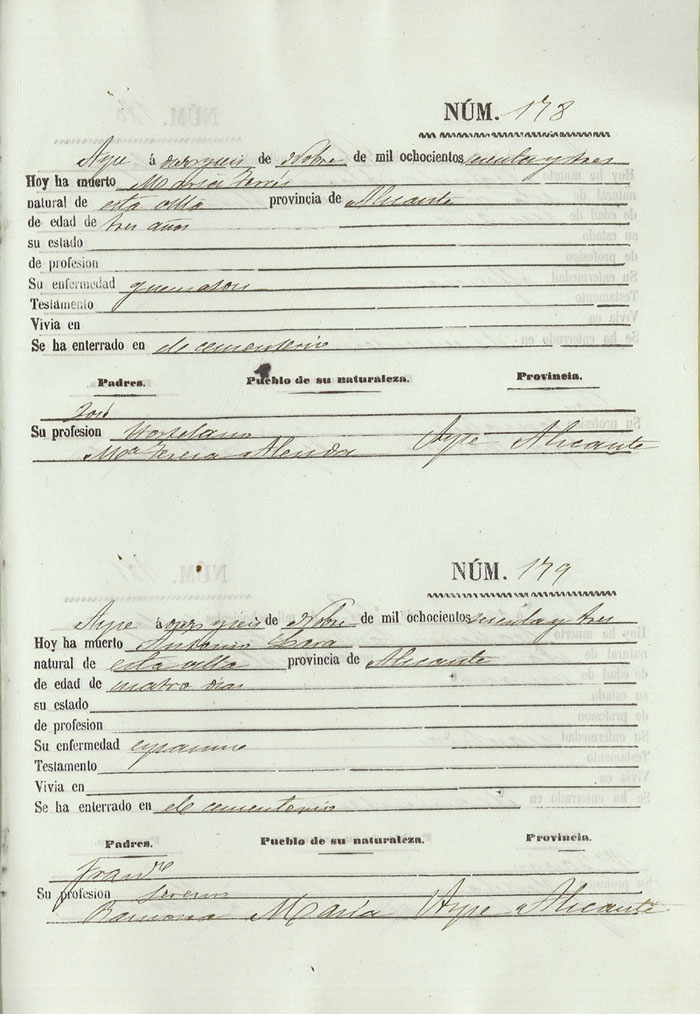 NÚM. 178
Aspe á de Nobre de mil ochocientos sesenta y tres
Hoy ha muerto Maria Ferrés
natural de esta villa provincia de Alicante
de edad de tres años
su estado
de profesion
Su enfermedad
Testamento
Vivia en
Se ha enterrado en el cementerio
Padres. Pueblo de su naturaleza. Provincia.
José
Su profesion Hortelano
Mª Teresa Alenda Aspe Alicante
NÚM. 179
Aspe á de Nobre de mil ochocientos sesenta y tres
Hoy ha muerto Antonio
natural de esta villa provincia de Alicante
de edad de cuatro dias
su estado
de profesion
Su enfermedad
Testamento
Vivia en
Se ha enterrado en el cementerio
Padres. Pueblo de su naturaleza. Provincia.
Franco
Su profesion
Ramona María Aspe Alicante